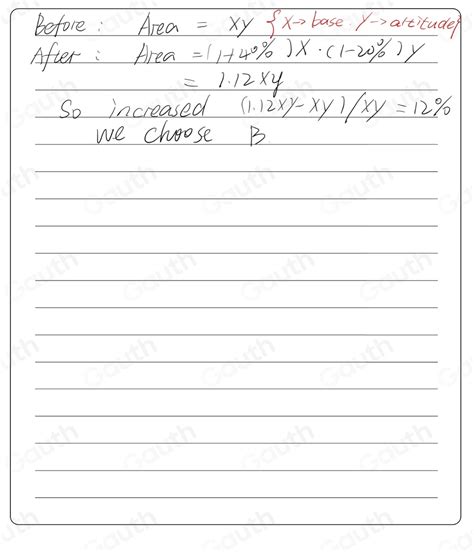 Before : Area = xy {x→base y→altitude}
After : Area = (1+40%)x·(1-20%)y
= 1.12xy
So increased (1.12xy-xy)/xy = 12%
we choose B
Gauth